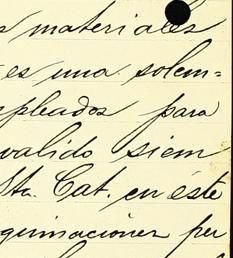 s materiales
es una solem=
pleados para
valido siem
Sta. Cat. en éste
quinaciones per